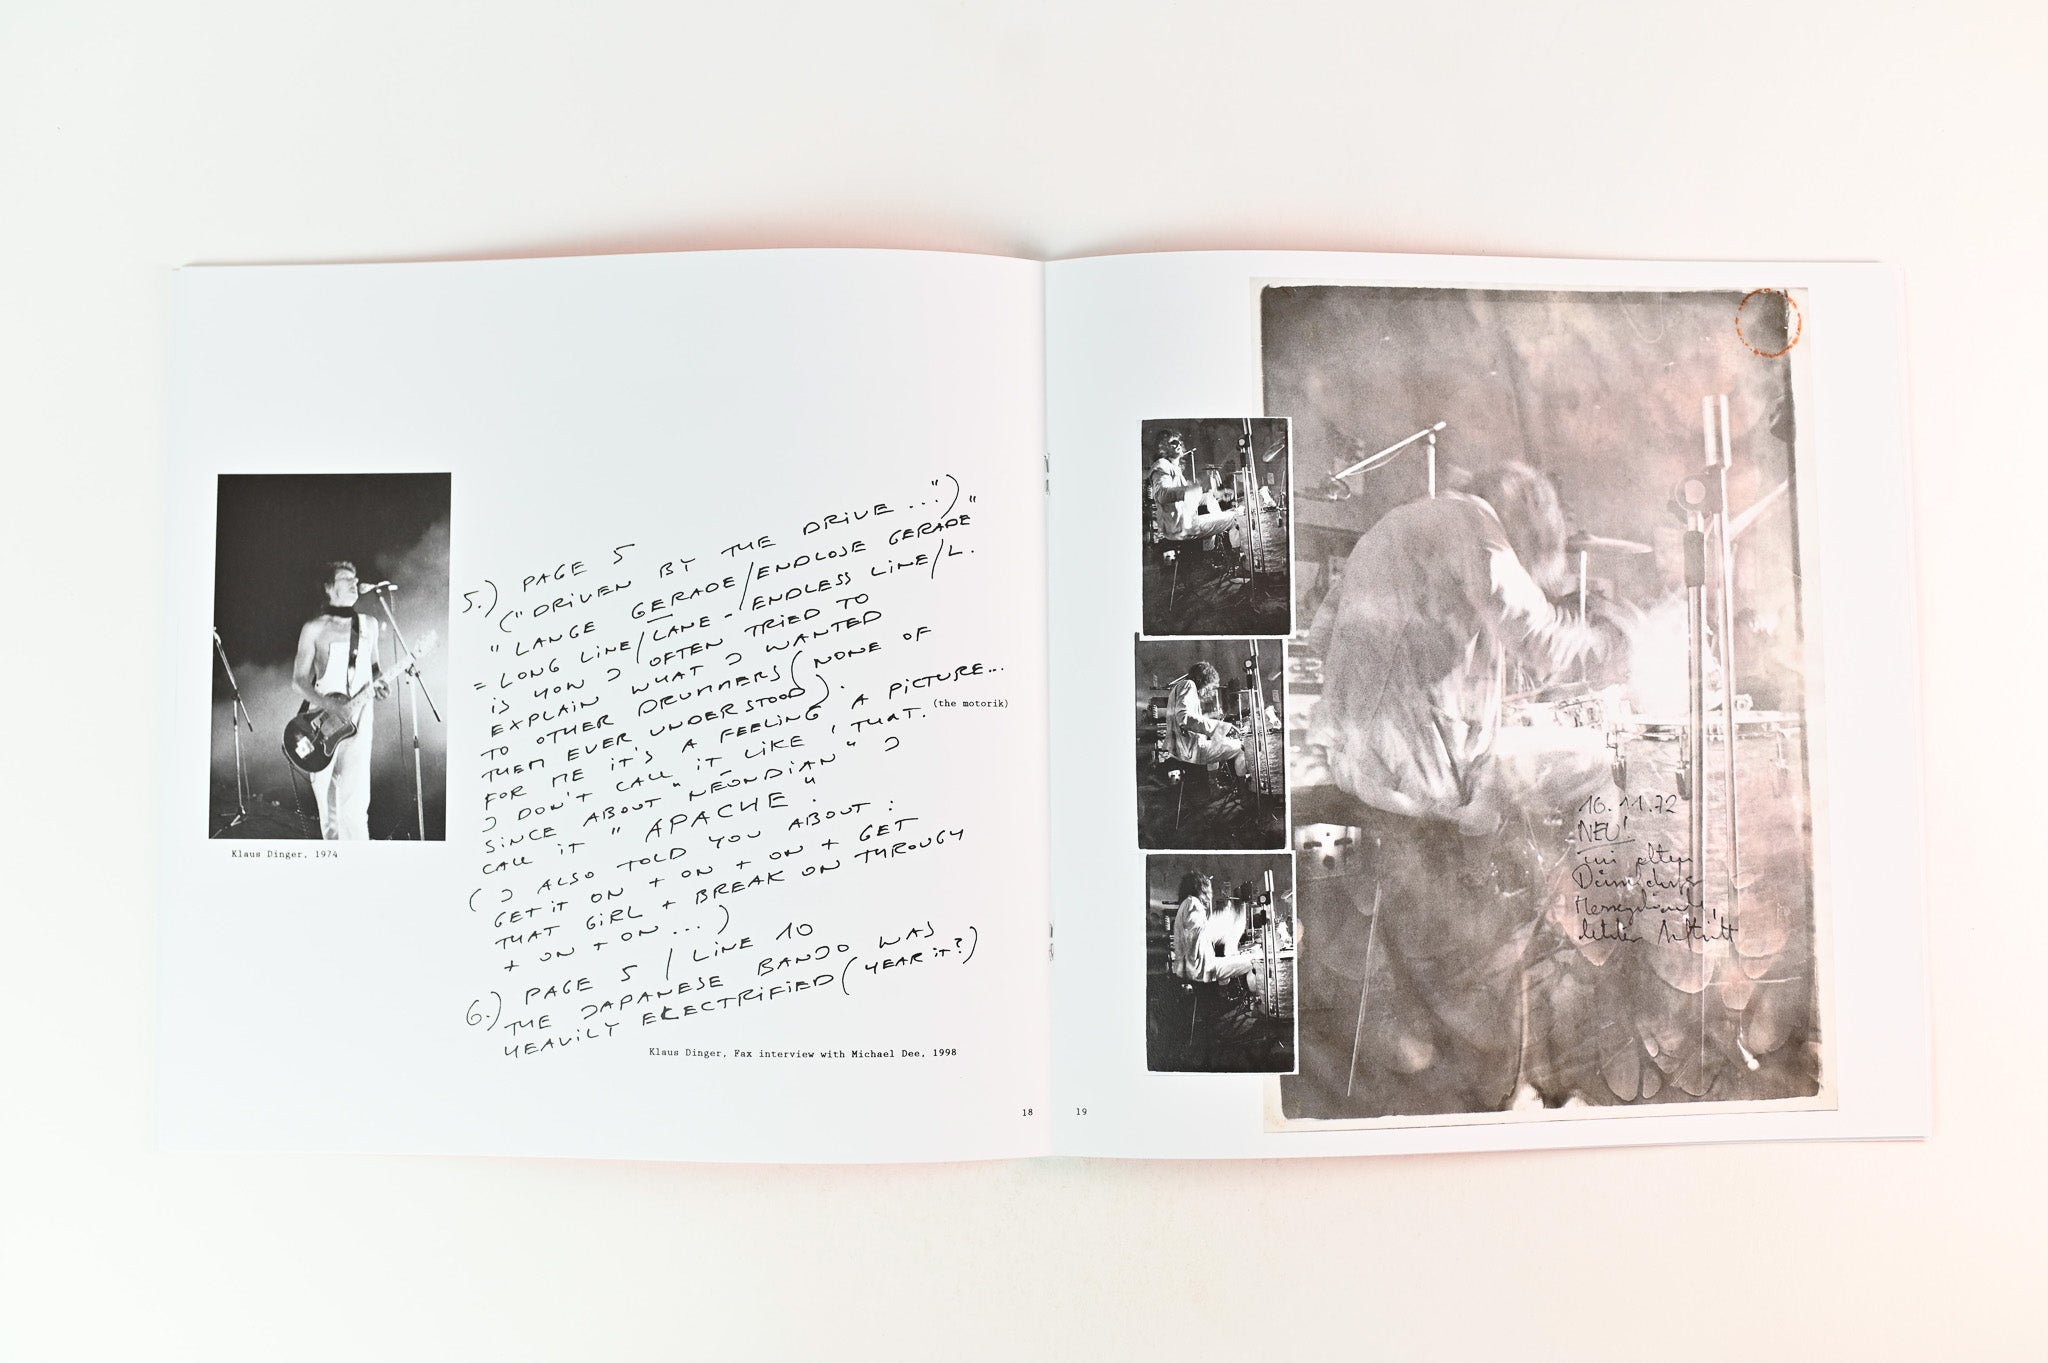 Klaus Dinger, 1974
5.) PAGE 5
("DRIVEN BY THE DRIVE ...")
"LANGE GERADE/ENDLOSE GERADE"
= LONG LINE/LANE - ENDLESS LINE/L.
IS HOW I OFTEN TRIED TO
EXPLAIN WHAT I WANTED
TO OTHER DRUMMERS (NONE OF
THEM EVER UNDERSTOOD).
FOR ME IT'S A FEELING, A PICTURE...
(the motorik)
I DON'T CALL IT LIKE THAT.
SINCE ABOUT "NÉONDIAN" I
CALL IT "APACHE".
(I ALSO TOLD YOU ABOUT:
GET IT ON + ON + ON + GET
THAT GIRL + BREAK ON THROUGH
+ ON + ON ...)
6.) PAGE 5 / LINE 10
THE JAPANESE BANJO WAS
HEAVILY ELECTRIFIED (HEAR IT?)
Klaus Dinger, Fax interview with Michael Dee, 1998
18
19
16.11.72
NEU!
im alten
Düsseldorfer
letzter Auftritt